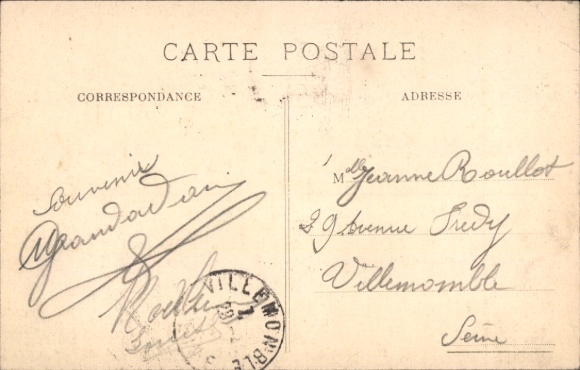 CARTE POSTALE
CORRESPONDANCE
ADRESSE
Souvenir
Mlle Jeanne Roullot
39 Avenue Fredy
Villemomble
Seine
VILLEMOMBLE